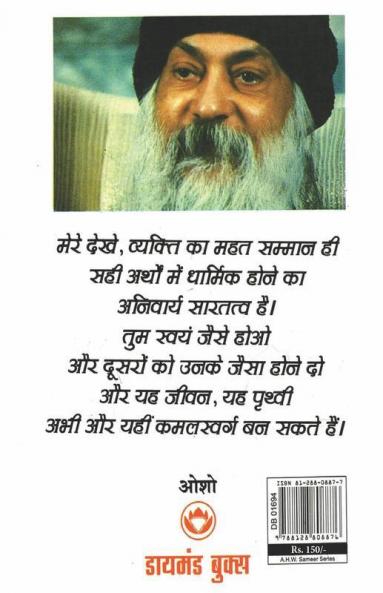 मेरे देखे, व्यक्ति का महत सम्मान ही
सही अर्थों में धार्मिक होने का
अनिवार्य सारतत्व है।
तुम स्वयं जैसे होओ
और दूसरों को उनके जैसा होने दो
और यह जीवन, यह पृथ्वी
अभी और यहीं कमलस्वर्ग बन सकते हैं।
ओशो
डायमंड बुक्स
DB 01694
ISBN 81-288-0887-7
9788128808876
Rs. 150/-
A.H.W. Sameer Series